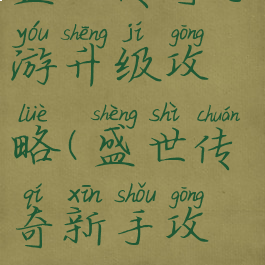 yóu shēng jí gōng
游升级攻
lüè shèng shì chuán
略(盛世传
qí xīn shǒu gōng
奇新手攻